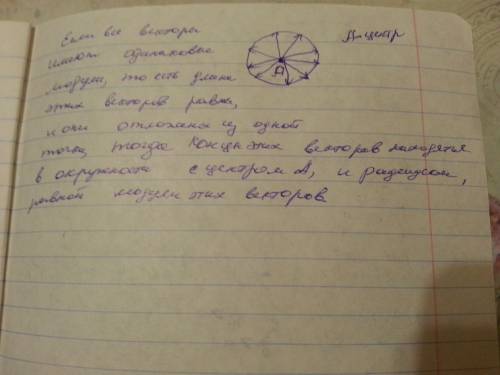 Если все векторы
имеют одинаковые
модули, то есть длина
этих векторов равна,
и они отложены из одной
точки, тогда концы этих векторов находятся
в окружности с центром А, и радиусом,
равной модулю этих векторов
А-центр
А